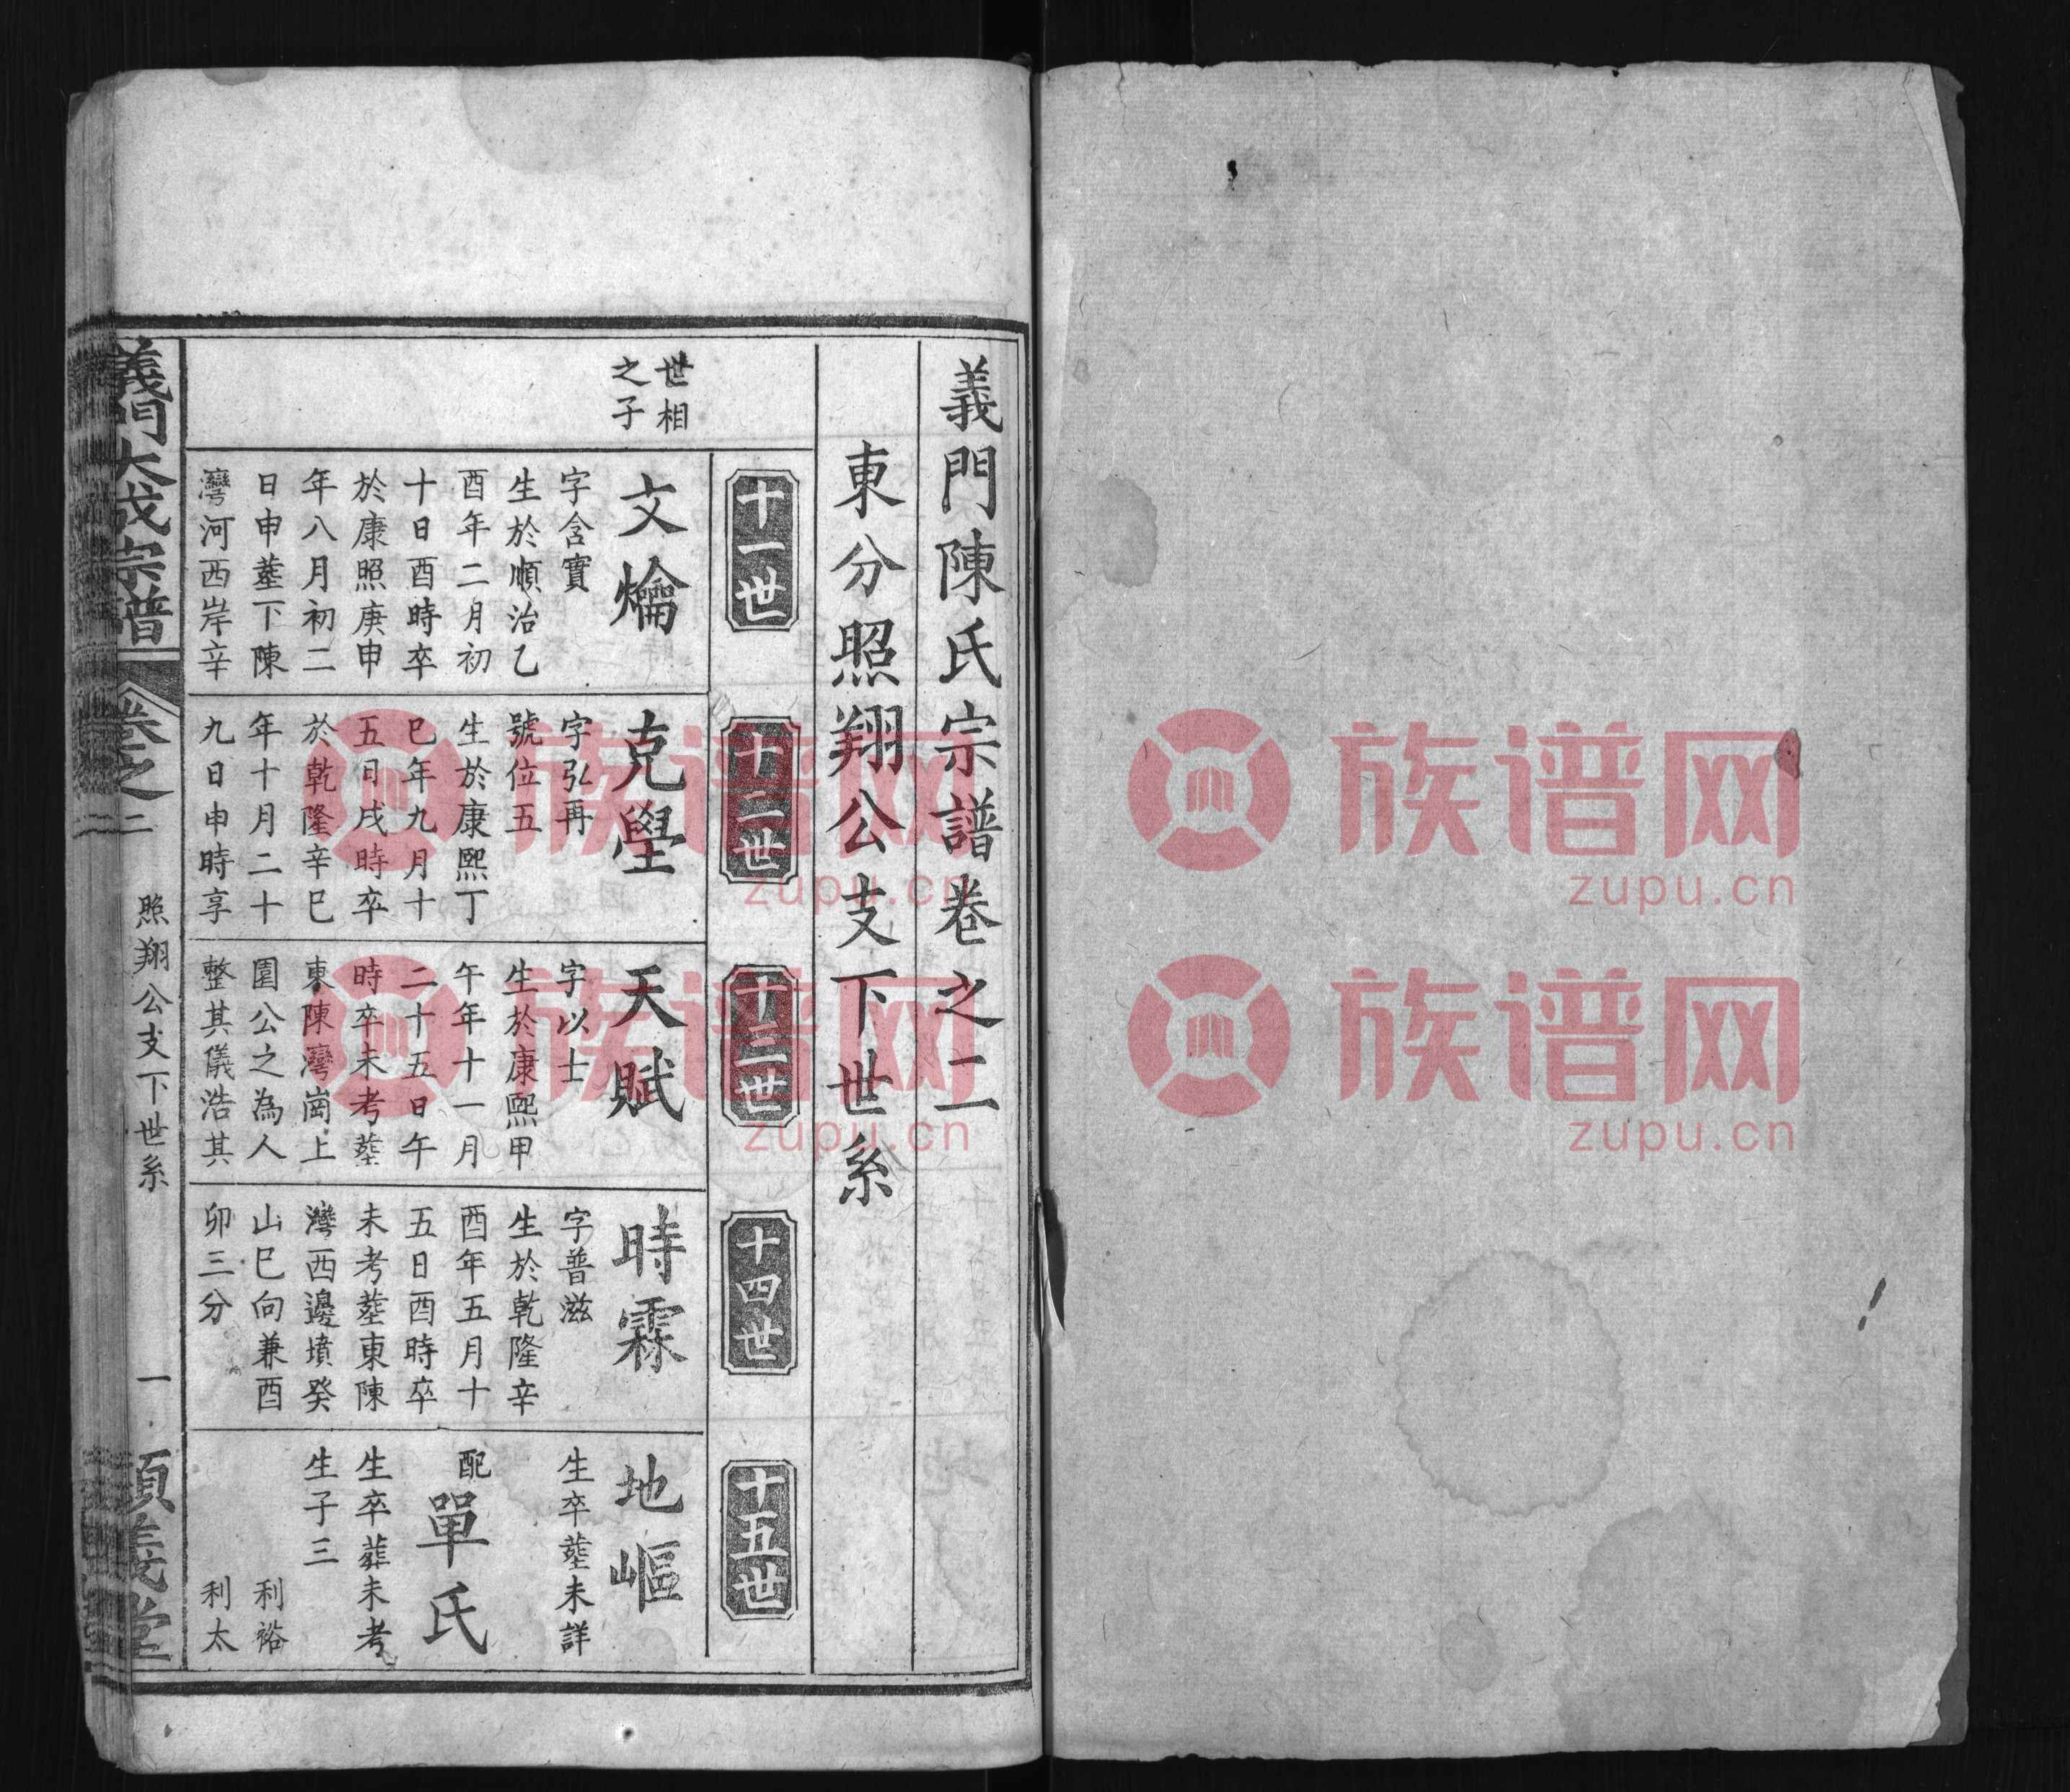 義門陳氏宗譜卷之二
東分照翔公支下世系
十一世
十二世
十三世
十四世
十五世
世相
之子
文爚
字含寶
生於順治乙
酉年二月初
十日酉時卒
於康熙庚申
年八月初二
日申塟下陳
灣河西岸辛
克學
字弘再
號位五
生於康熙丁
巳年九月十
五日戌時卒
於乾隆辛巳
年十月二十
九日申時享
天賦
字以士
生於康熙甲
午年十一月
二十五日午
時卒未考塟
東陳灣崗上
園公之為人
整其儀浩其
時霖
字普滋
生於乾隆辛
酉年五月十
五日酉時卒
未考塟東陳
灣西邊墳癸
山巳向兼酉
卯三分
地嶇
生卒塟未詳
配單氏
生卒葬未考
生子三
利裕
利太
義門大成宗譜
卷之二
照翔公支下世系
一
義堂
族谱网
zupu.cn
族谱网
zupu.cn
族谱网
zupu.cn
族谱网
zupu.cn